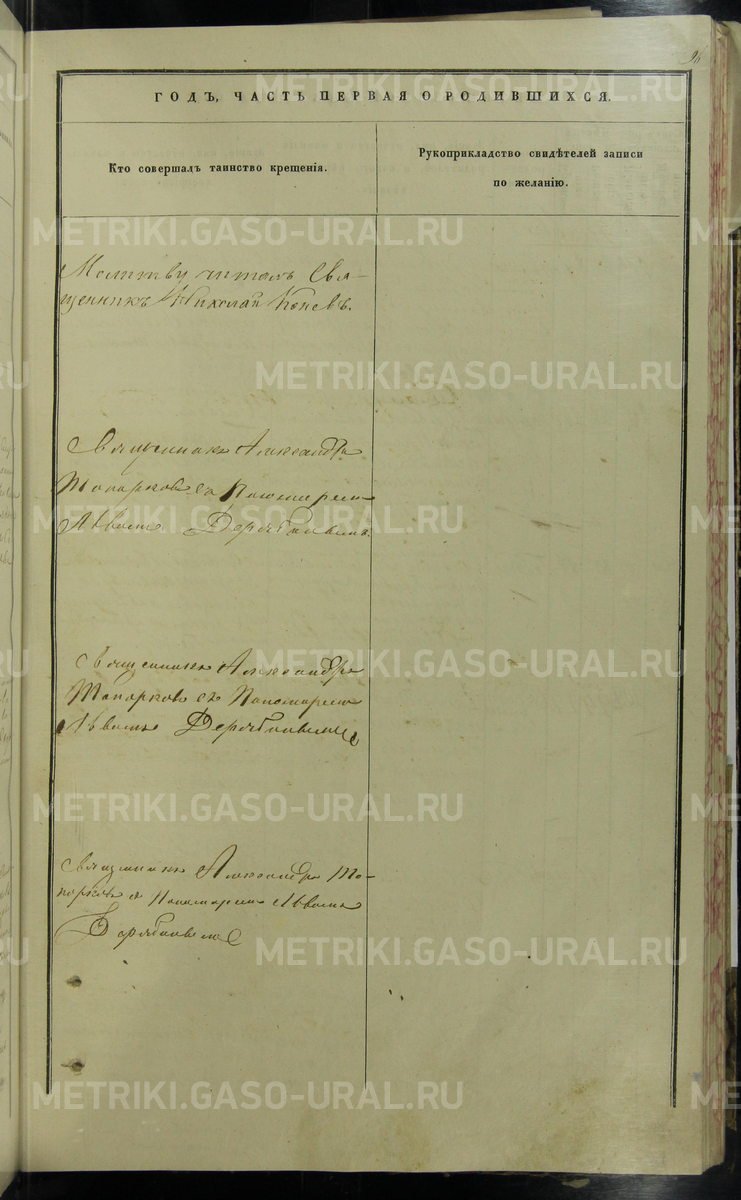 96
ГОДЪ, ЧАСТЬ ПЕРВАЯ О РОДИВШИХСЯ.
Кто совершалъ таинство крещенія.
Рукоприкладство свидѣтелей записи
по желанію.
Молитву читалъ Свя-
щенникъ Николай Коневъ.
Священникъ Александръ
Топорковъ съ Пономаремъ
Львомъ Дерябинымъ.
Священникъ Александръ
Топорковъ съ Пономаремъ
Львомъ Дерябинымъ
Священникъ Александръ То-
порковъ съ Пономаремъ Львомъ
Дерябинымъ
METRIKI.GASO-URAL.RU